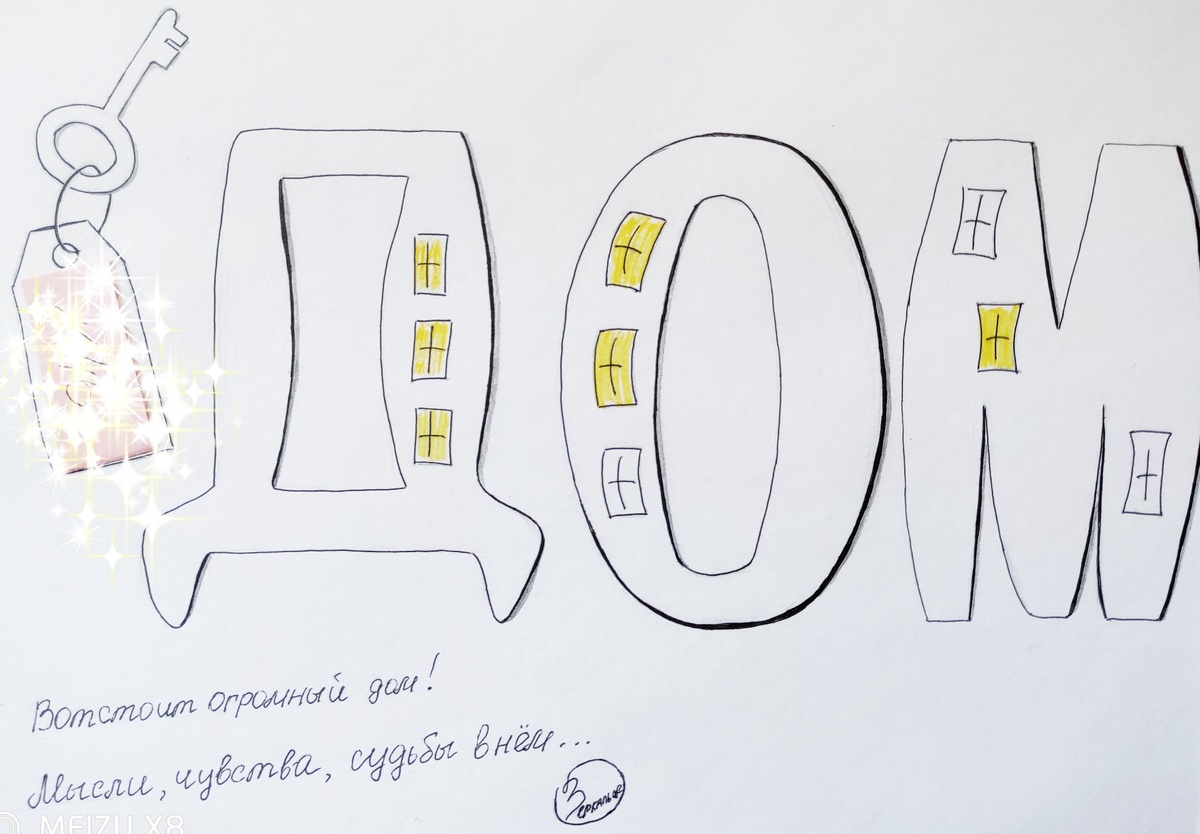 ДОМ
Вот стоит огромный дом!
Мысли, чувства, судьбы в нём...
Зеркальце
MEIZU X8